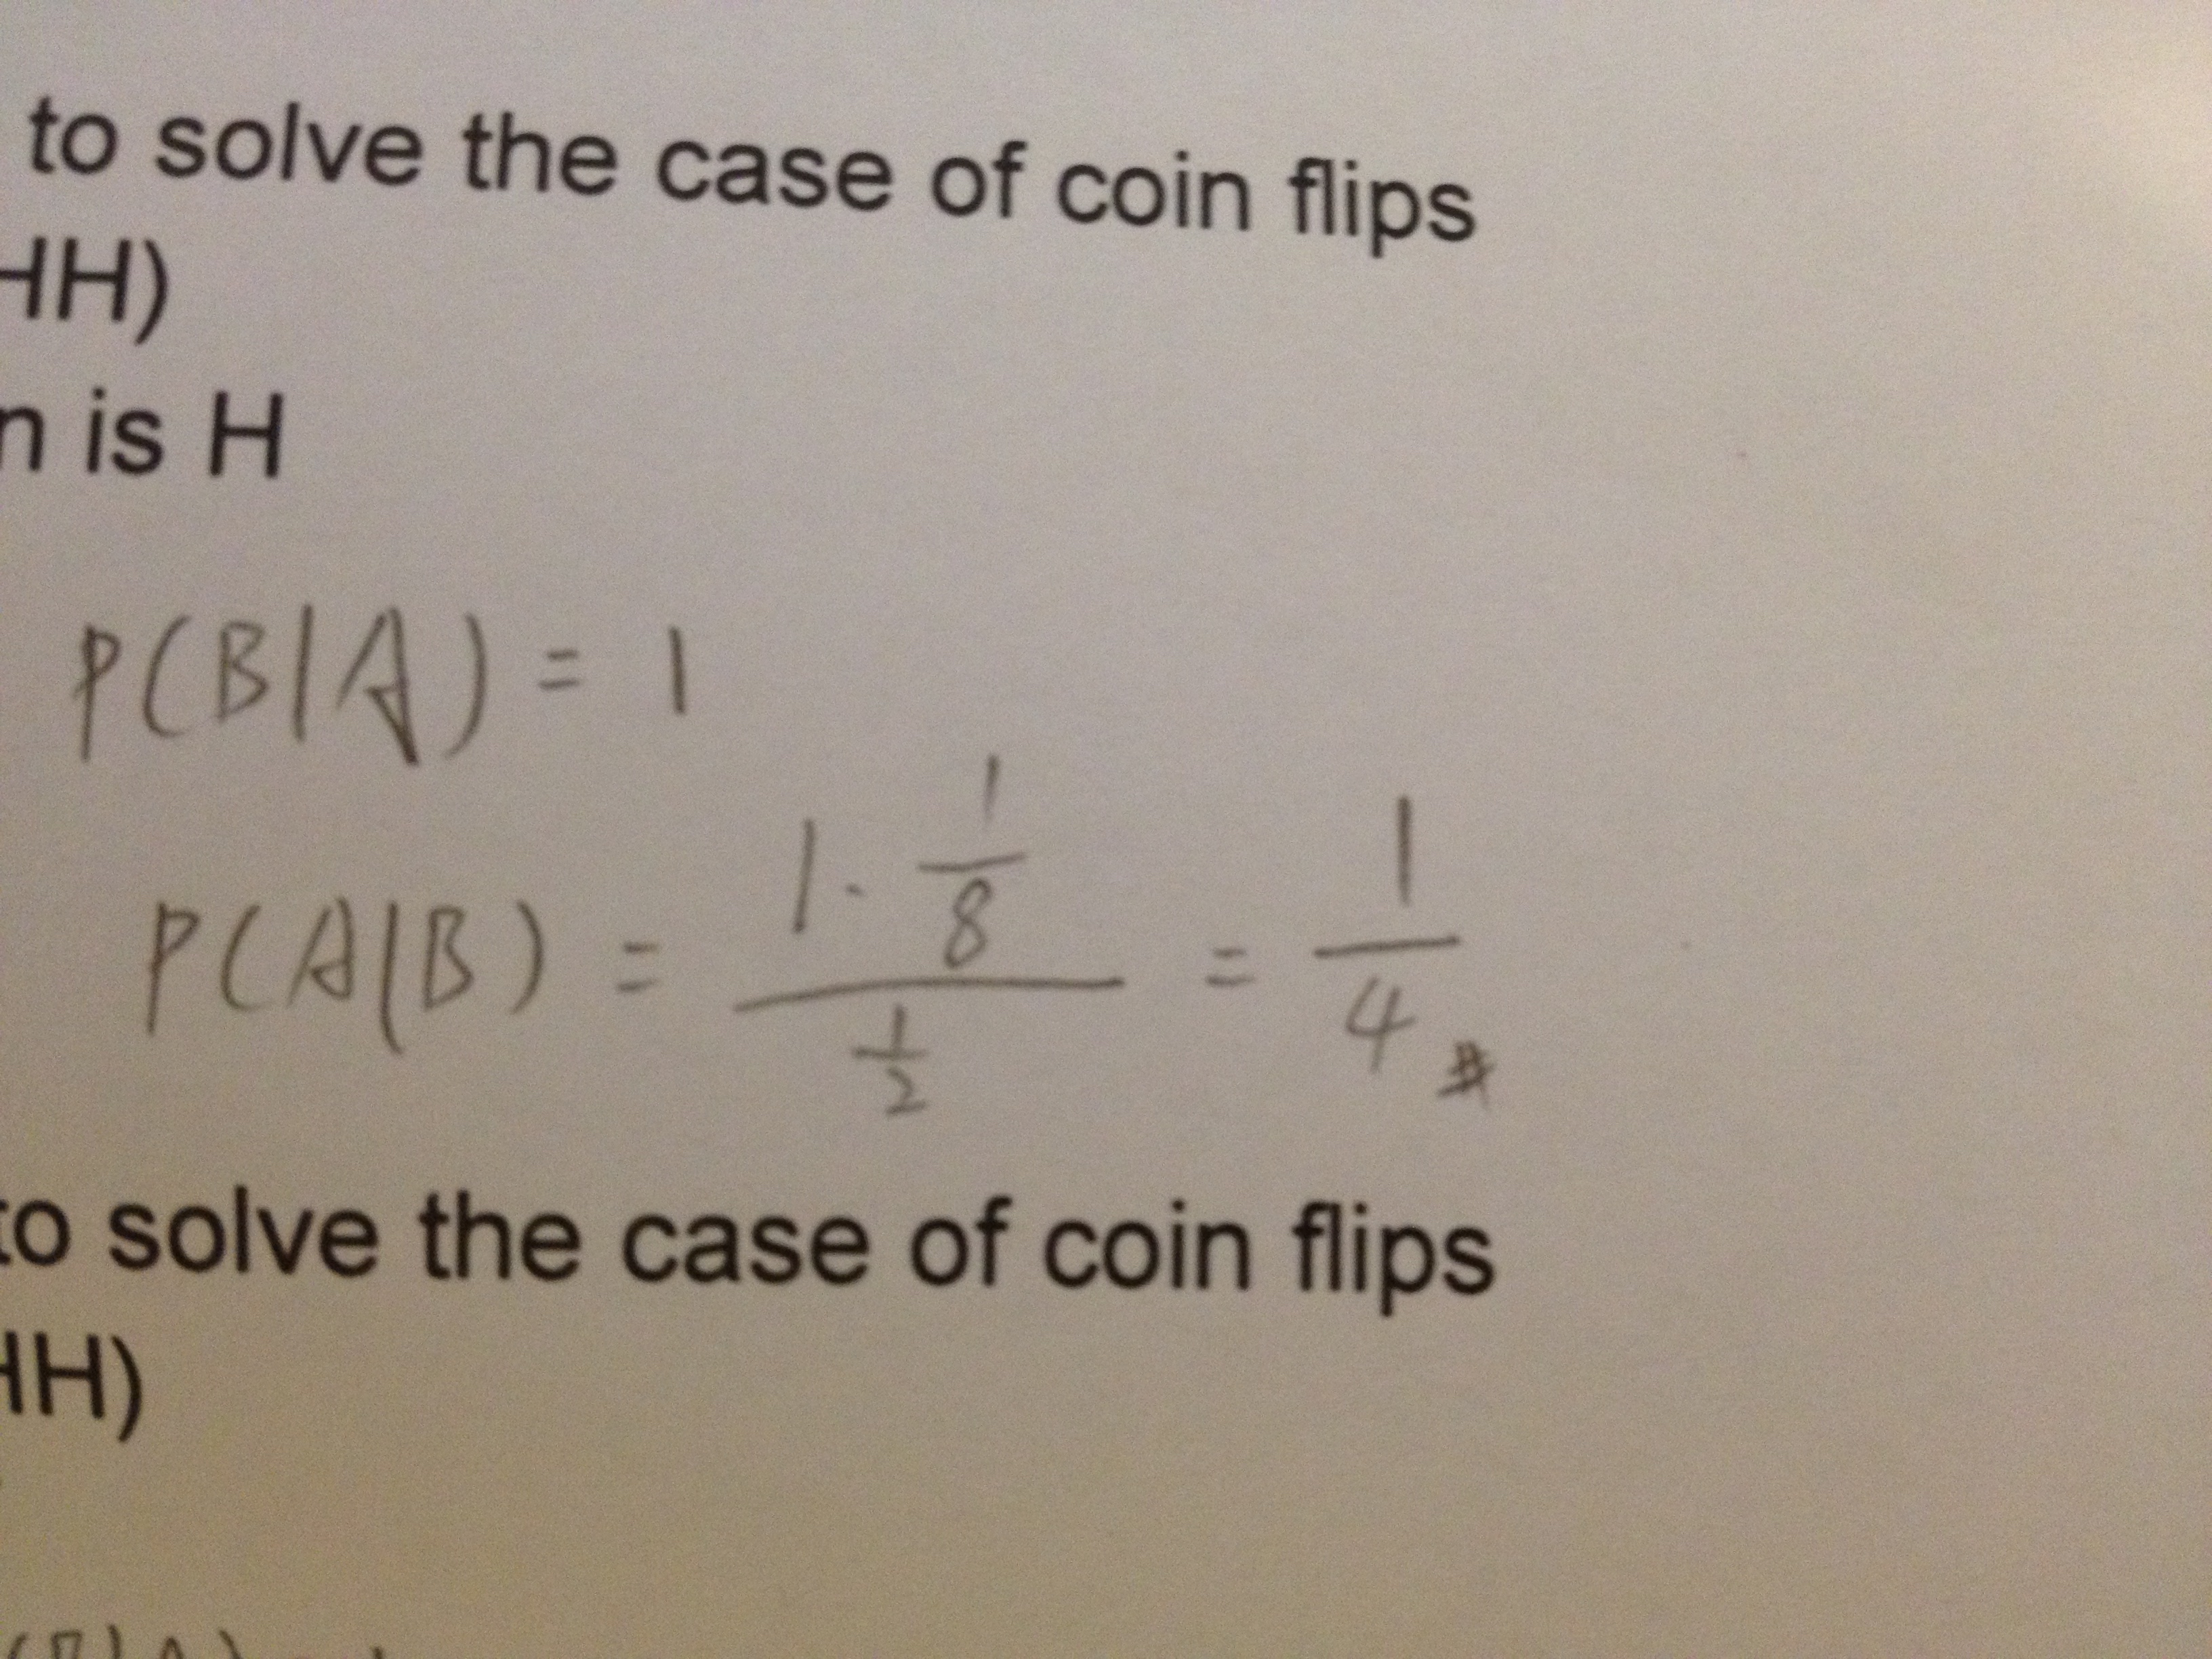 to solve the case of coin flips
HH)
n is H
P(B|A) = 1
P(A|B) = (1 · 1/8) / (1/2) = 1/4 #
to solve the case of coin flips
HH)